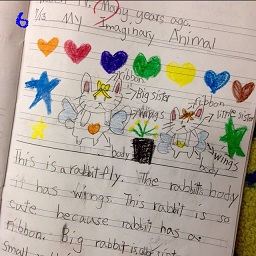 Many years ago,
6
7/3 My Imaginary Animal
ribbon
Big sister
wings
ribbon
little sister
wings
body
body
This is a rabbitfly. The rabbits body
it has wings. This rabbit is so
cute because rabbit has a
ribbon. Big rabbit is
small